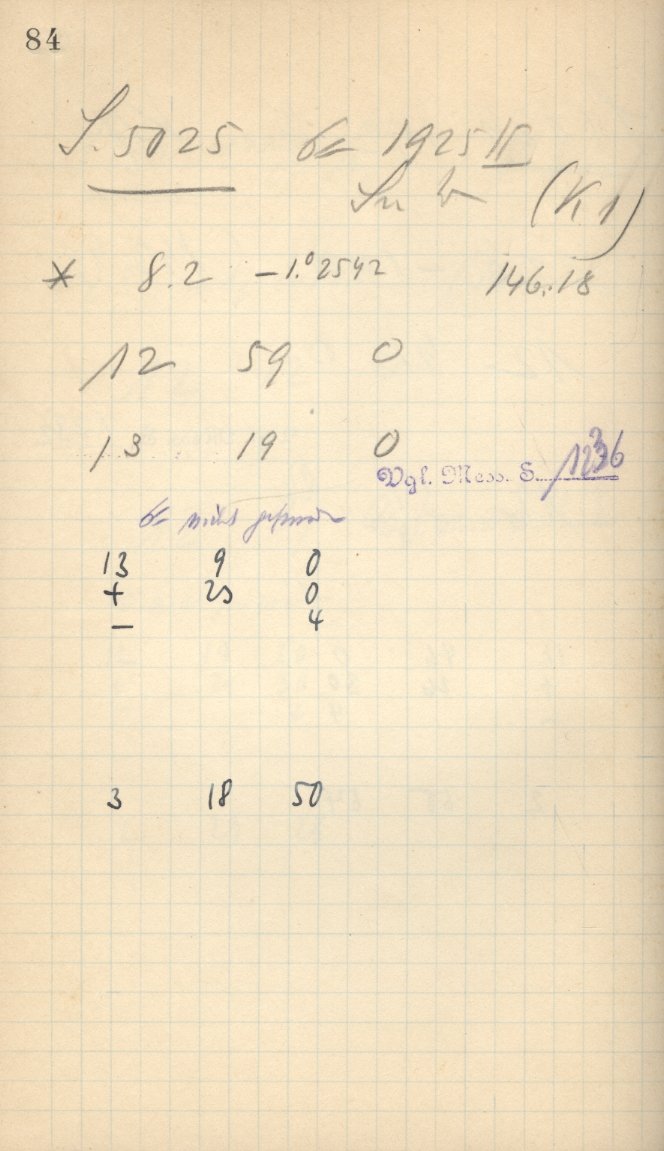 84
S. 5025 1925 II
(K1)
* 8.2 -1.°2542 146.18
12 59 0
13 19 0
Vgl. Mess. S.
nicht
13 9 0
+ 0
- 4
3 18 50